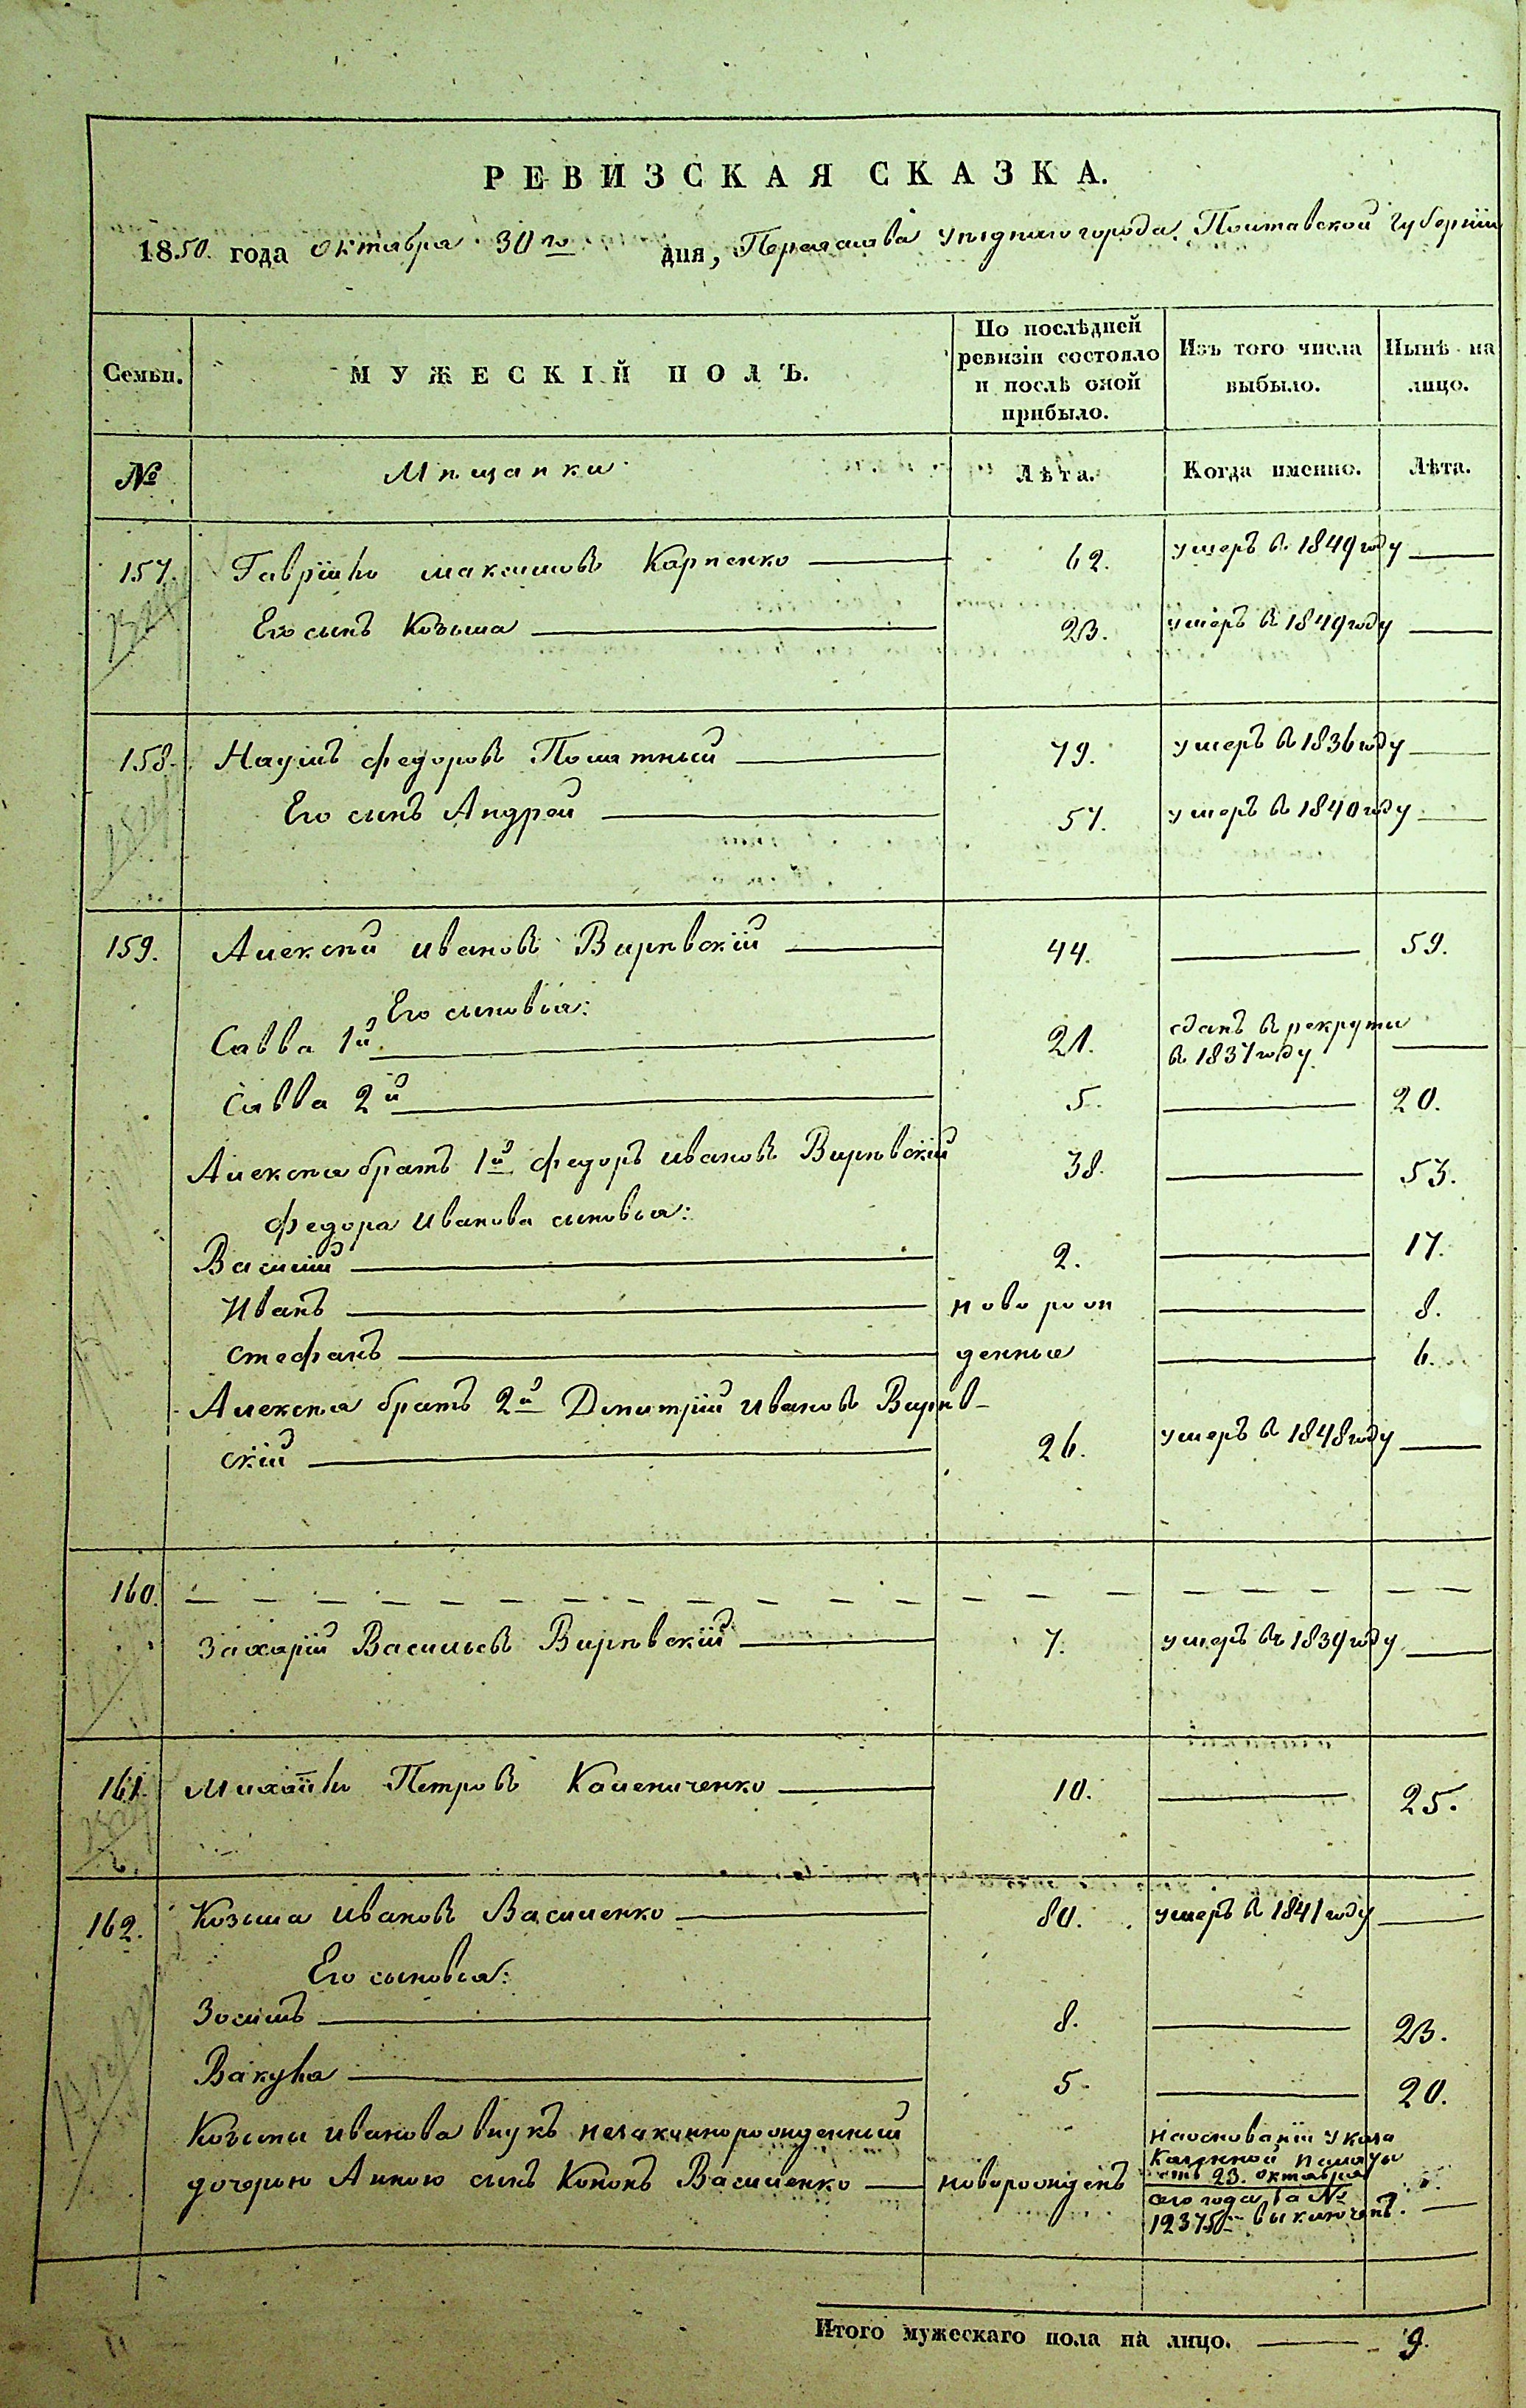 РЕВИЗСКАЯ СКАЗКА.
1850. года октября 30го дня, Переяслава уѣзднаго города Полтавской Губерніи
Семьи. МУЖЕСКІЙ ПОЛЪ. По послѣдней ревизіи состояло и послѣ оной прибыло. Изъ того числа выбыло. Нынѣ на лицо.
№ Мѣщанки Лѣта. Когда именно. Лѣта.
157. Гаврїило Максимовъ Карпенко 62. умеръ в 1849 году
Его сынъ Козьма 23. умеръ в 1849 году
158. Наумъ Федоровъ Помятный 79. умеръ в 1836 году
Его сынъ Андрей 57. умеръ в 1840 году
159. Алексѣй Ивановъ Вирѣвскїй 44. 59.
Его сыновья:
Савва 1й 21. сданъ в рекруты в 1837 году
Савва 2й 5. 20.
Алексѣя братъ 1й Федоръ Ивановъ Вирѣвскїй 38. 53.
Федора Иванова сыновья:
Василїй 2. 17.
Иванъ новорож 8.
Стефанъ денные 6.
Алексѣя братъ 2й Дмитрїй Ивановъ Вирѣв-
скїй 26. умеръ в 1848 году
160.
Захарїй Васильевъ Вирѣвскїй 7. умеръ въ 1839 году
161. Михайло Петровъ Калениченко 10. 25.
162. Козьма Ивановъ Василенко 80. умеръ в 1841 году
Его сыновья:
Зосимъ 8. 23.
Вакула 5. 20.
Козьмы Иванова внукъ незаконнорожденный
дочерью Анною сынъ Кононъ Василенко новорожденъ
На основанїи Указа
Казенной Палаты
отъ 23. октября
сего года за №
12375 выключенъ.
Итого мужескаго пола на лицо. 9.